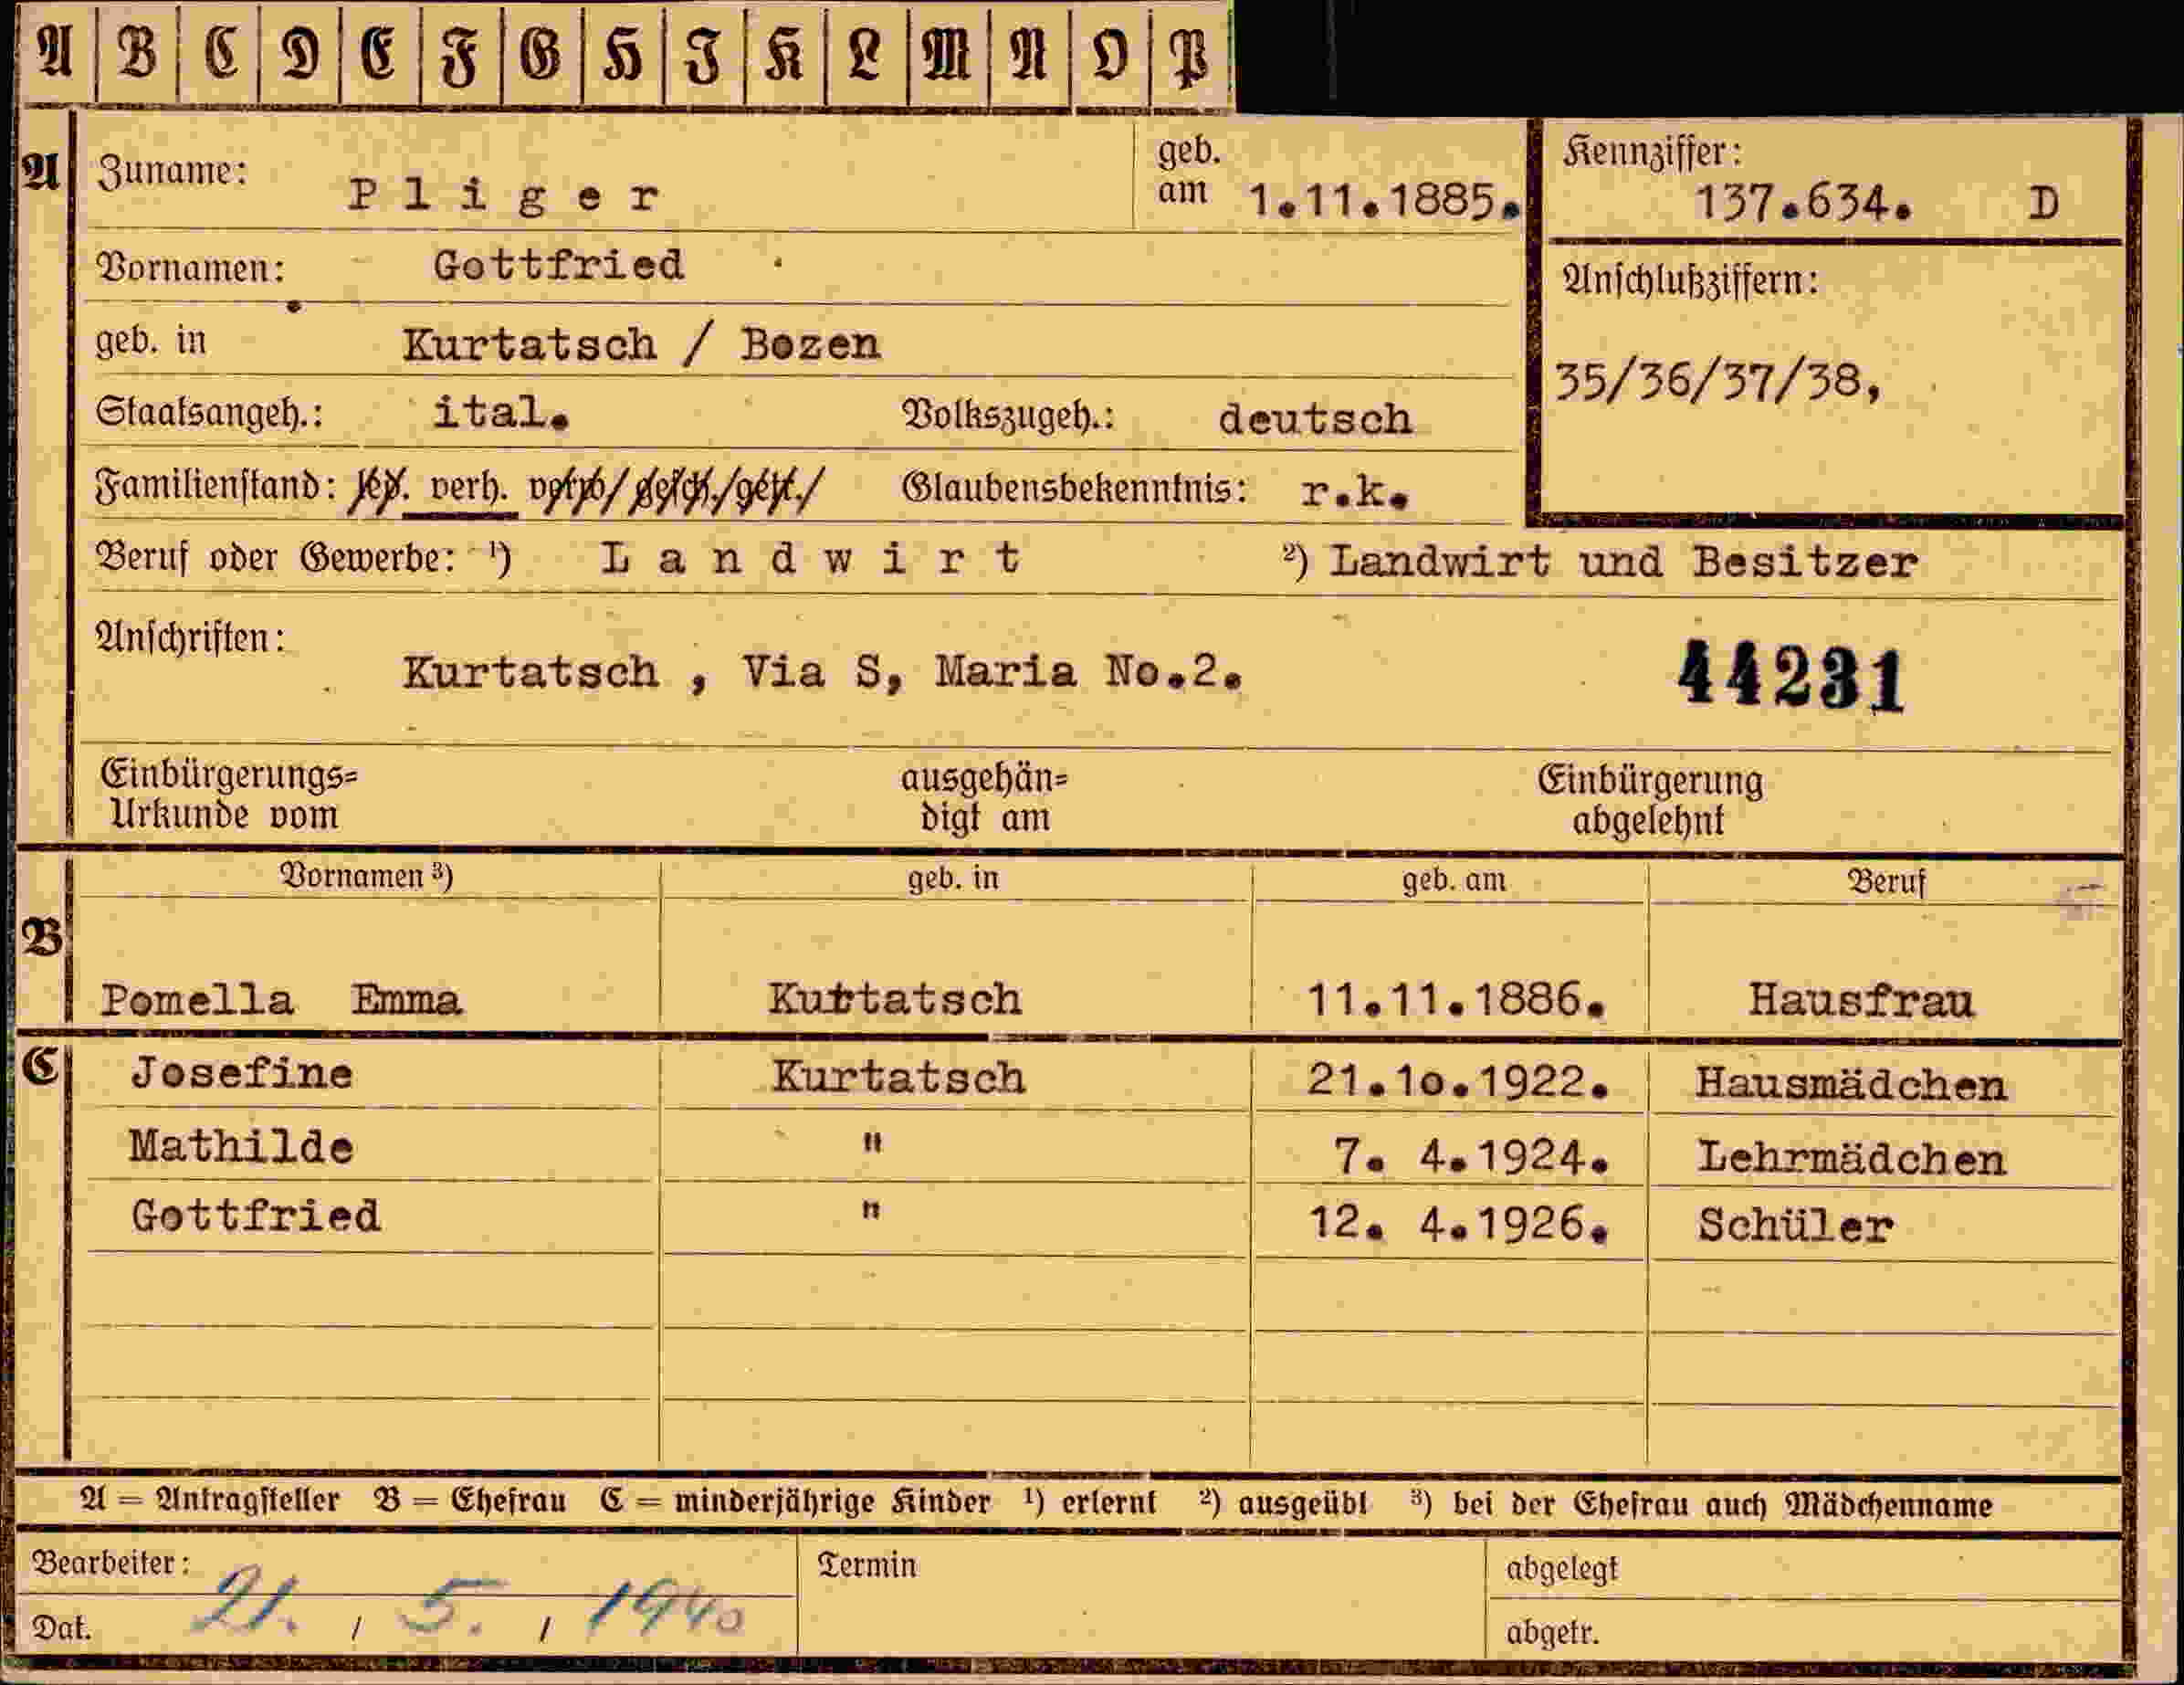 A B C D E F G H I K L M N O P
A Zuname: Pliger geb. am 1.11.1885. Kennziffer: 137.634. D
Vornamen: Gottfried Anschlußziffern:
geb. in Kurtatsch / Bozen 35/36/37/38,
Staatsangeh.: ital. Volkszugeh.: deutsch
Familienstand: led. verh. verw./gesch./getr./ Glaubensbekenntnis: r.k.
Beruf oder Gewerbe: ¹) Landwirt ²) Landwirt und Besitzer
Anschriften:
Kurtatsch , Via S, Maria No.2. 44231
Einbürgerungs= ausgehän= Einbürgerung
Urkunde vom digt am abgelehnt
Vornamen ³) geb. in geb. am Beruf
B
Pomella Emma Kurtatsch 11.11.1886. Hausfrau
C Josefine Kurtatsch 21.10.1922. Hausmädchen
Mathilde " 7. 4.1924. Lehrmädchen
Gottfried " 12. 4.1926. Schüler
A = Antragsteller B = Ehefrau C = minderjährige Kinder ¹) erlernt ²) ausgeübt ³) bei der Ehefrau auch Mädchenname
Bearbeiter: Termin abgelegt
Dat. 21. / 5. / 1940 abgetr.